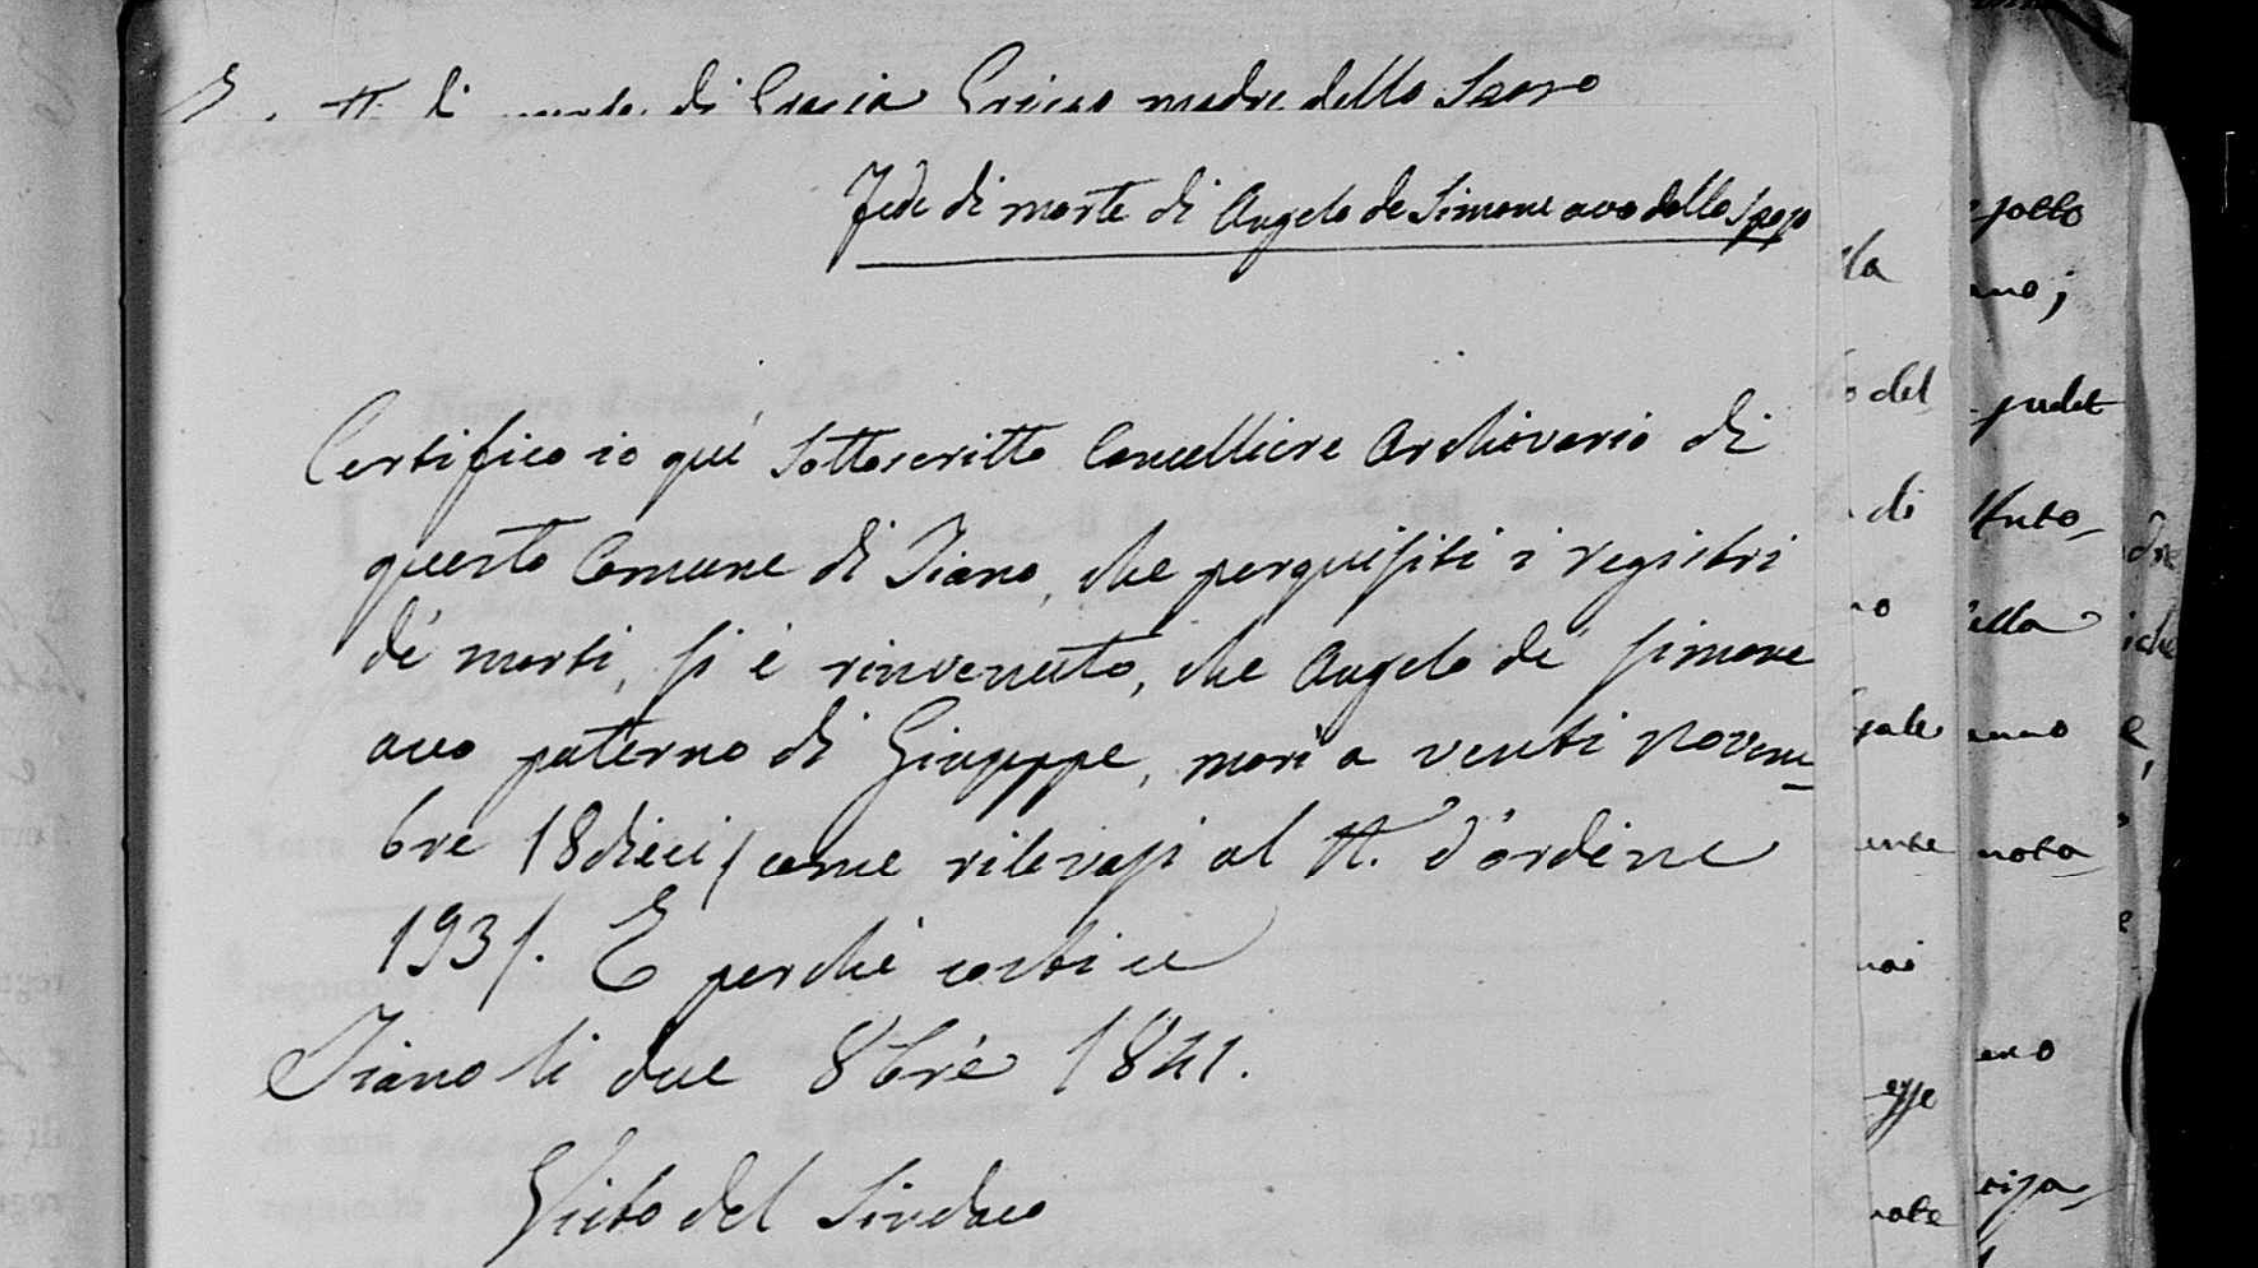 di Grazia Grieco madre dello Sposo
Fede di morte di Angelo de Simone avo dello Sposo
Certifico io quì Sottoscritto Cancelliere Archivario di
questo Comune di Tiano, che perquisiti i registri
dè morti, si è rinvenuto, che Angelo de Simone
avo paterno di Giuseppe, morì a venti Novem-
bre 18dieci / come rilevasi al N. d'ordine
193/. E perchè costi ce
Tiano li due 8bre 1841.
Visto del Sindaco
lla
o del
di
no
gale
ente
nai
esse
nate
sotto
ano;
sudet
ella
anno
nota